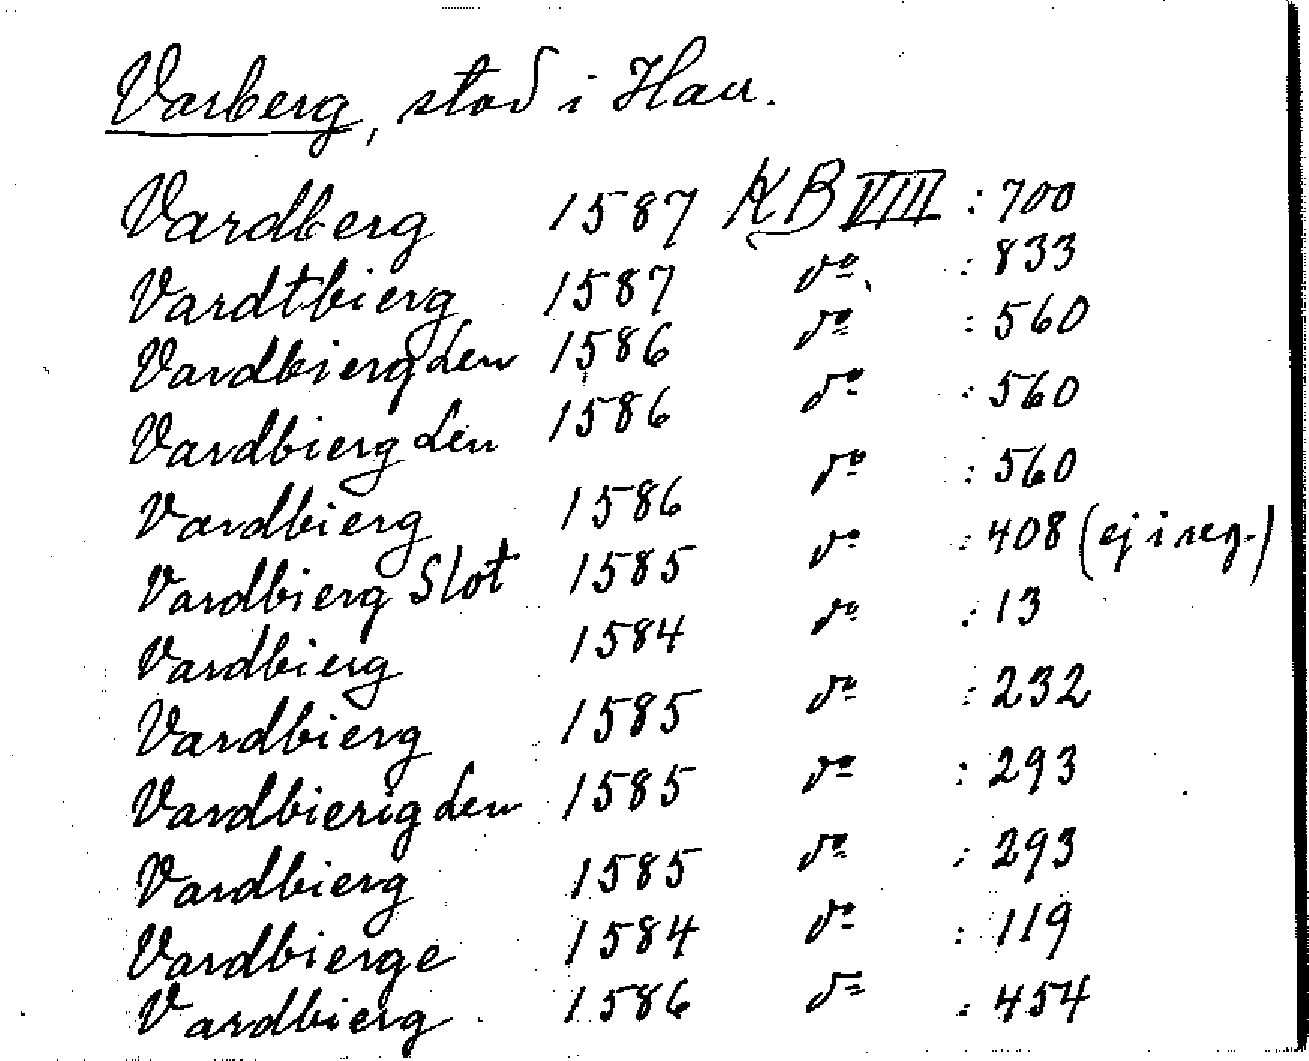 Varberg, stad i Hall.
Vardberg 1587 KB VIII : 700
Vardtbierg 1587 do : 833
Vardbierg den 1586 do : 560
Vardbierg den 1586 do : 560
Vardbierg 1586 do : 560
Vardbierg Slot 1585 do : 408 (ej i reg.)
Vardbierg 1584 do : 13
Vardbierg 1585 do : 232
Vardbierig den 1585 do : 293
Vardbierg 1585 do : 293
Vardbierge 1584 do : 119
Vardbierg 1586 do : 454